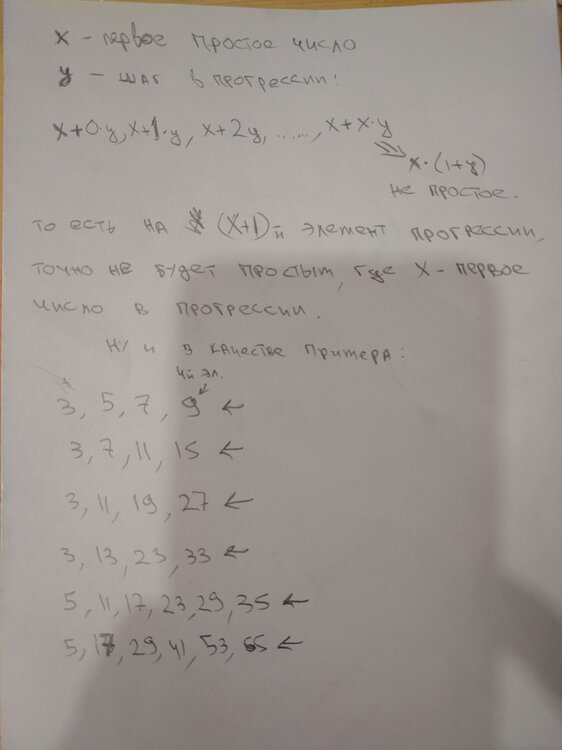 x - первое простое число
y - шаг в прогрессии:
x+0·y, x+1·y, x+2y, ....., x+x·y
x·(1+y)
не простое.
то есть на (x+1)й элемент прогрессии,
точно не будет простым, где x - первое
число в прогрессии.
Ну и в качестве примера:
4й эл.
3, 5, 7, 9 ←
3, 7, 11, 15 ←
3, 11, 19, 27 ←
3, 13, 23, 33 ←
5, 11, 17, 23, 29, 35 ←
5, 17, 29, 41, 53, 65 ←